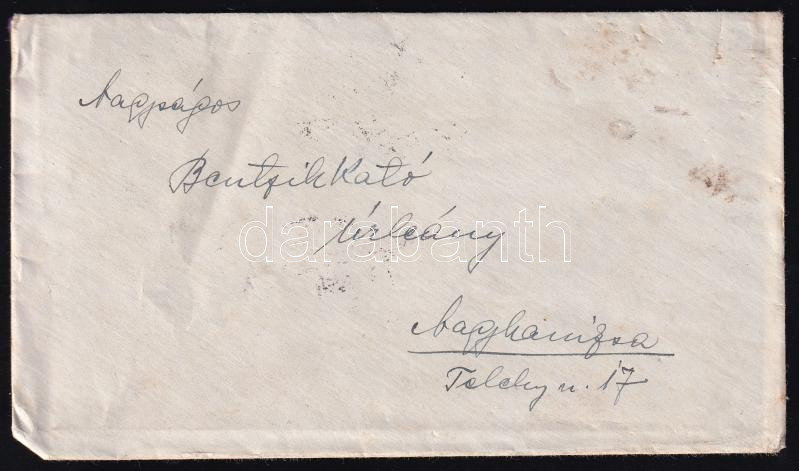 Nagyságos
Bentzik Kató
Úrleány
darabanth
Nagykanizsa
Teleky u. 17